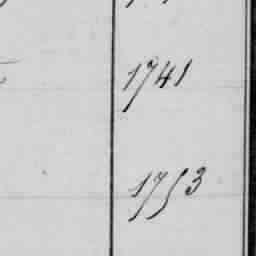 1741
1753